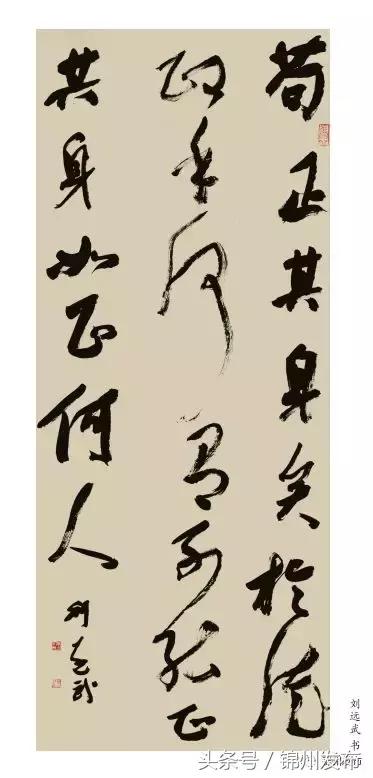 苟正其身矣於從
政乎何有不能正
其身如正何人
刘远武
刘远武 书
头条号 / 锦州发布